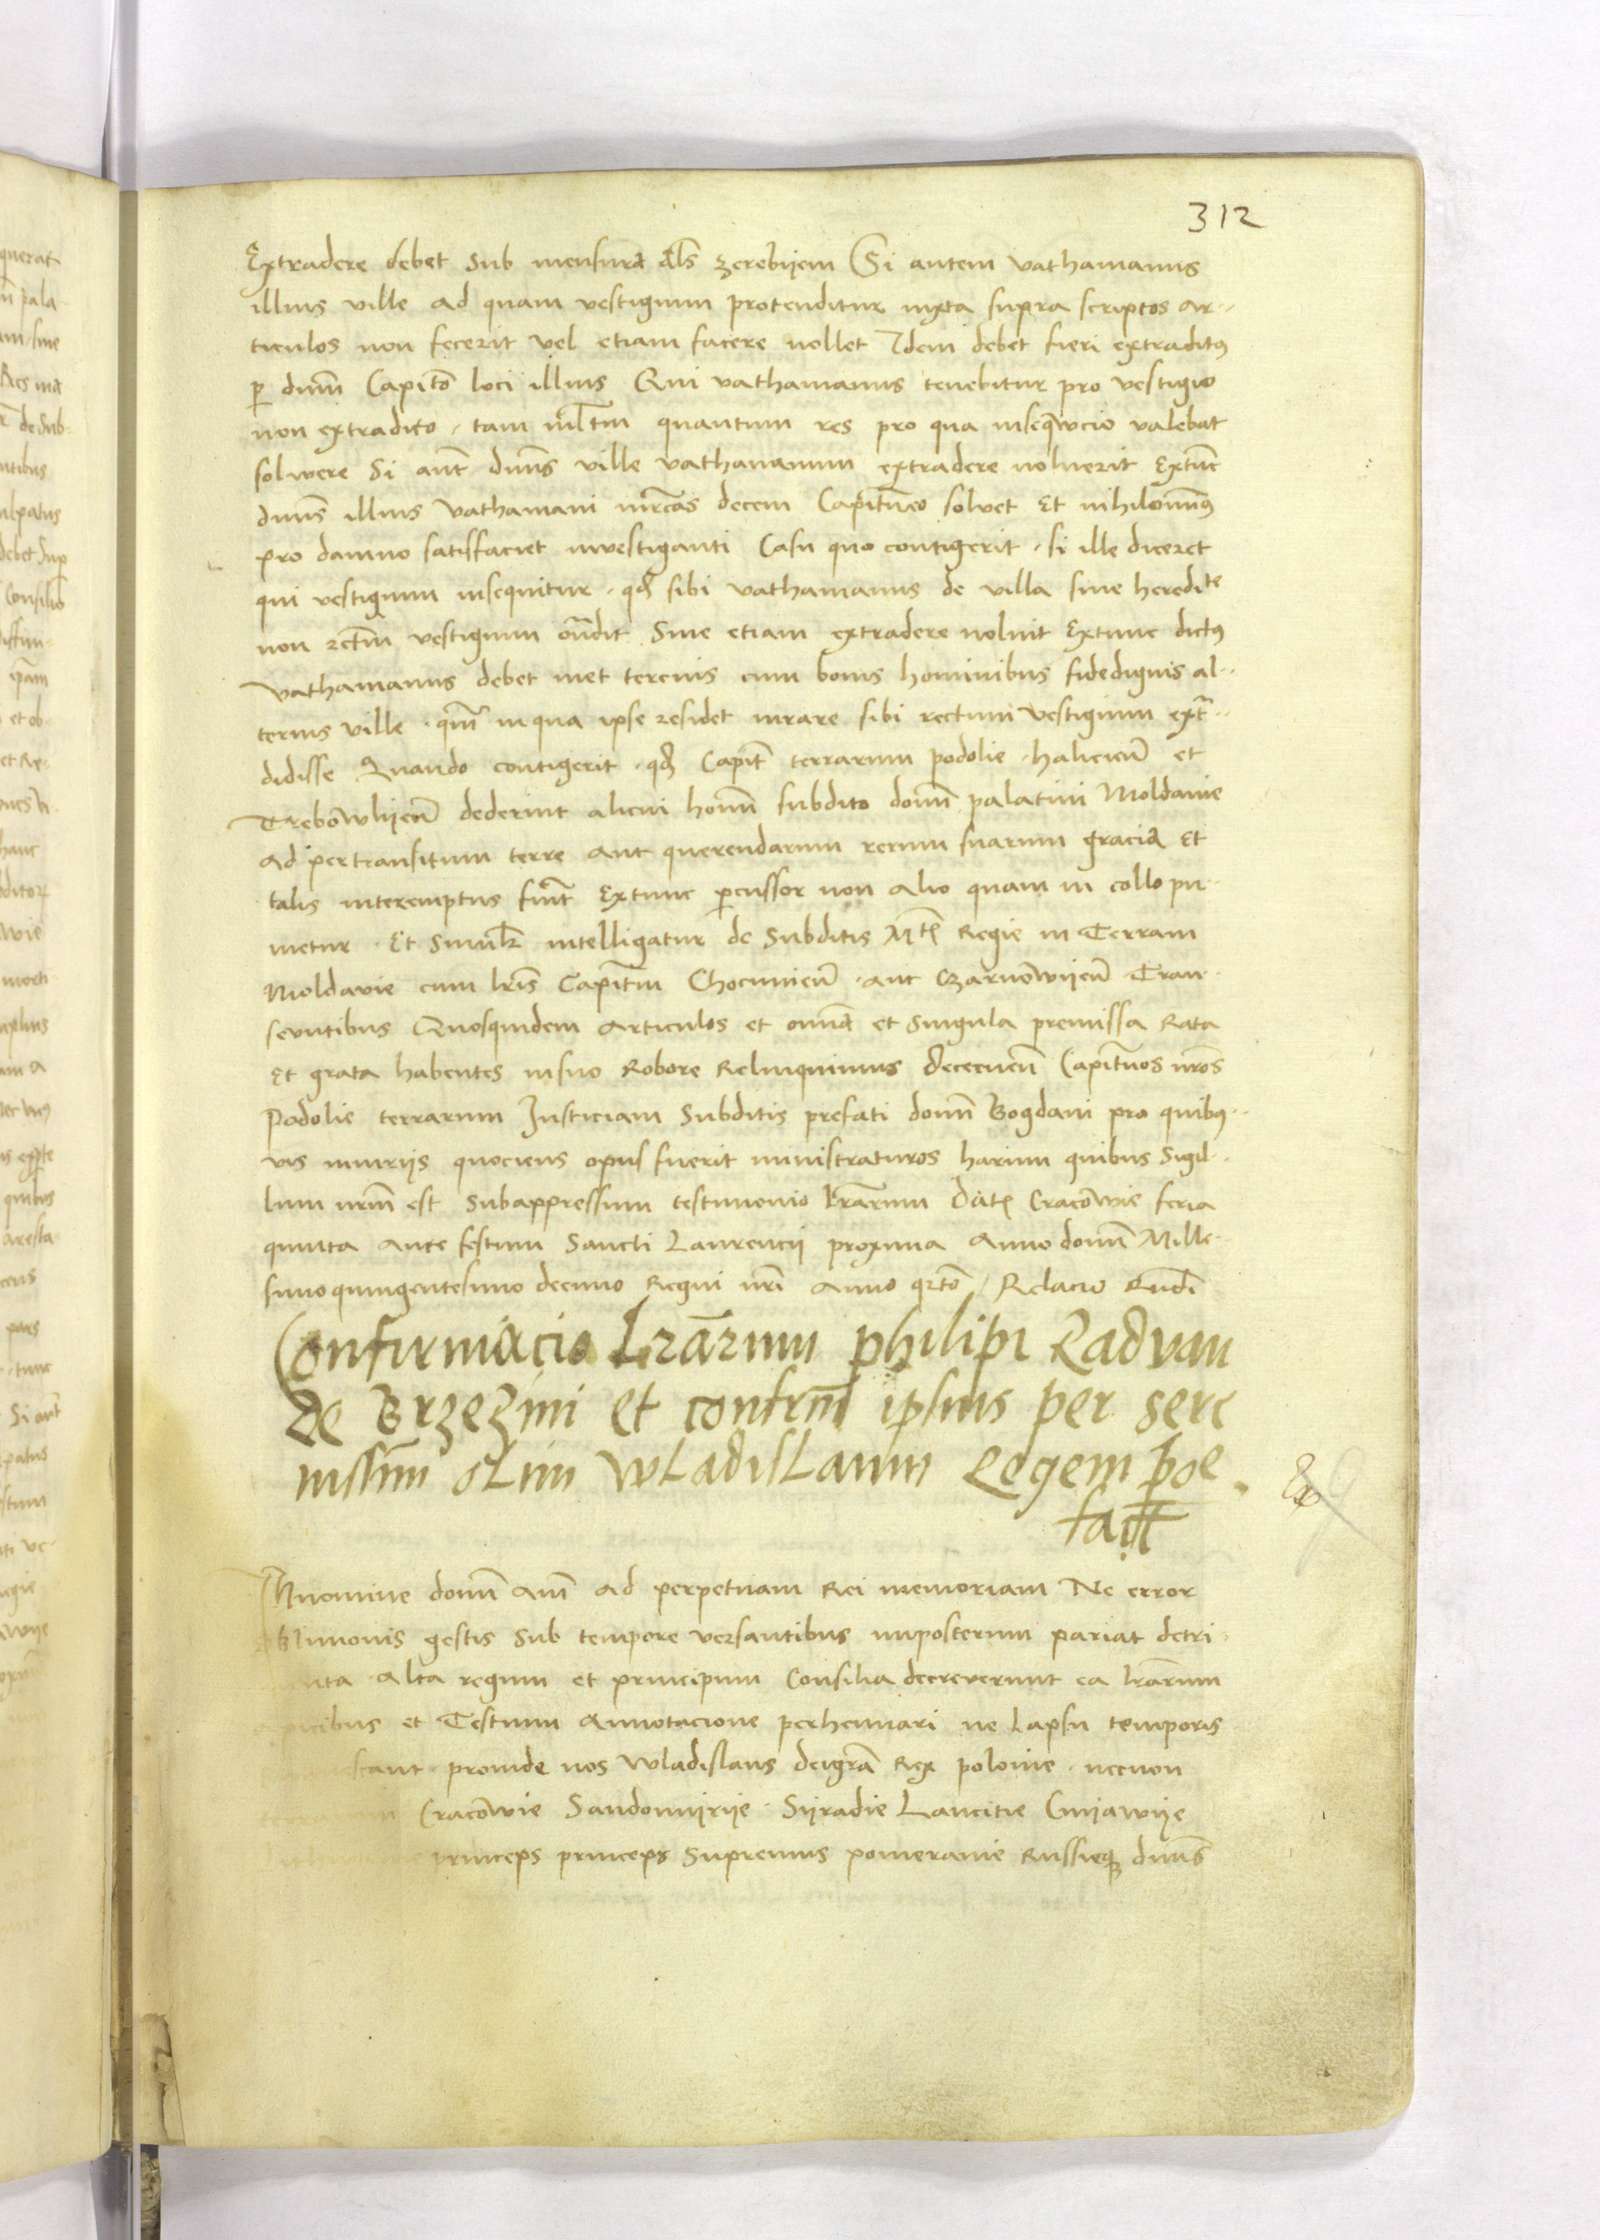 312
Extradere debet sub mensura als zerebyem Si autem vathamanus
illius ville ad quam vestigium protenditur iuxta supra scriptos ar-
ticulos non fecerit vel etiam facere nollet Idem debet fieri extraditus
per dnm Capito loci illius Qui vathamanus tenebitur pro vestigio
non extradito tam mltm quantum res pro qua inseqwcio valebat
solwere Si aut dnns ville vathamanum extradere noluerit Extunc
dnns illius vathamani mrcas decem Capitneo solvet Et nihilominus
pro damno satisfaciet investiganti Casu quo contigerit si ille diceret
qui vestigium insequitur qd sibi vathamanus de villa sive heredite
non rectm vestigium ondit Sive etiam extradere noluit Extunc dictus
vathamanus debet met tercius cum bonis hominibus fidedignis al-
terius ville qm in qua ipse residet iurare sibi rectum vestigium extr-
didisse Quando contigerit qd Capit terrarum podolie halicien et
Trebowlyen dederint alicui homi subdito domi palatini Moldavie
ad pertransitum terre aut querendarum rerum suarum gracia Et
talis interemptus fuit Extunc percussor non alio quam in collo pu-
nietur Et simili intelligatur de subditis Mtis Regie in Terram
Moldavie cum lris Capitm Chocimien aut Czarnowyen Tran-
seuntibus Quosquidem articulos et omnia et singula premissa Rata
Et grata habentes in suo Robore Relinquimus Decernen Capitneos nros
Podolie terrarum Iusticiam Subditis prefati domi Bogdani pro quibus-
vis iniuriis quociens opus fuerit ministraturos harum quibus Sigil-
lum nrm est subappressum testimonio lrarum Dat Cracowie feria
quinta ante festum Sancti Laurencii proxima Anno domi Mille-
simoquingentesimo decimo Regni nri anno qrto Relacio Eiusdem
Confirmacio Lrarum philipi Radvan
de Brzezini et confrm ipsius per sere
nissim olim Wladislaum Regem poe
fact
In nomine domi am ad perpetuam Rei memoriam Ne error
oblivionis gestis sub tempore versantibus imposterum pariat detri-
menta Alta regum et principum Consilia decreverunt ea lrarum
apicibus et Testium annotacione perhennari ne lapsu temporis
proinde nos Wladislaus deigra Rex polonie necnon
Cracowie Sandomirie Syradie Lancitie Cuyawye
princeps princeps Supremus pomeranie Russieque dnns